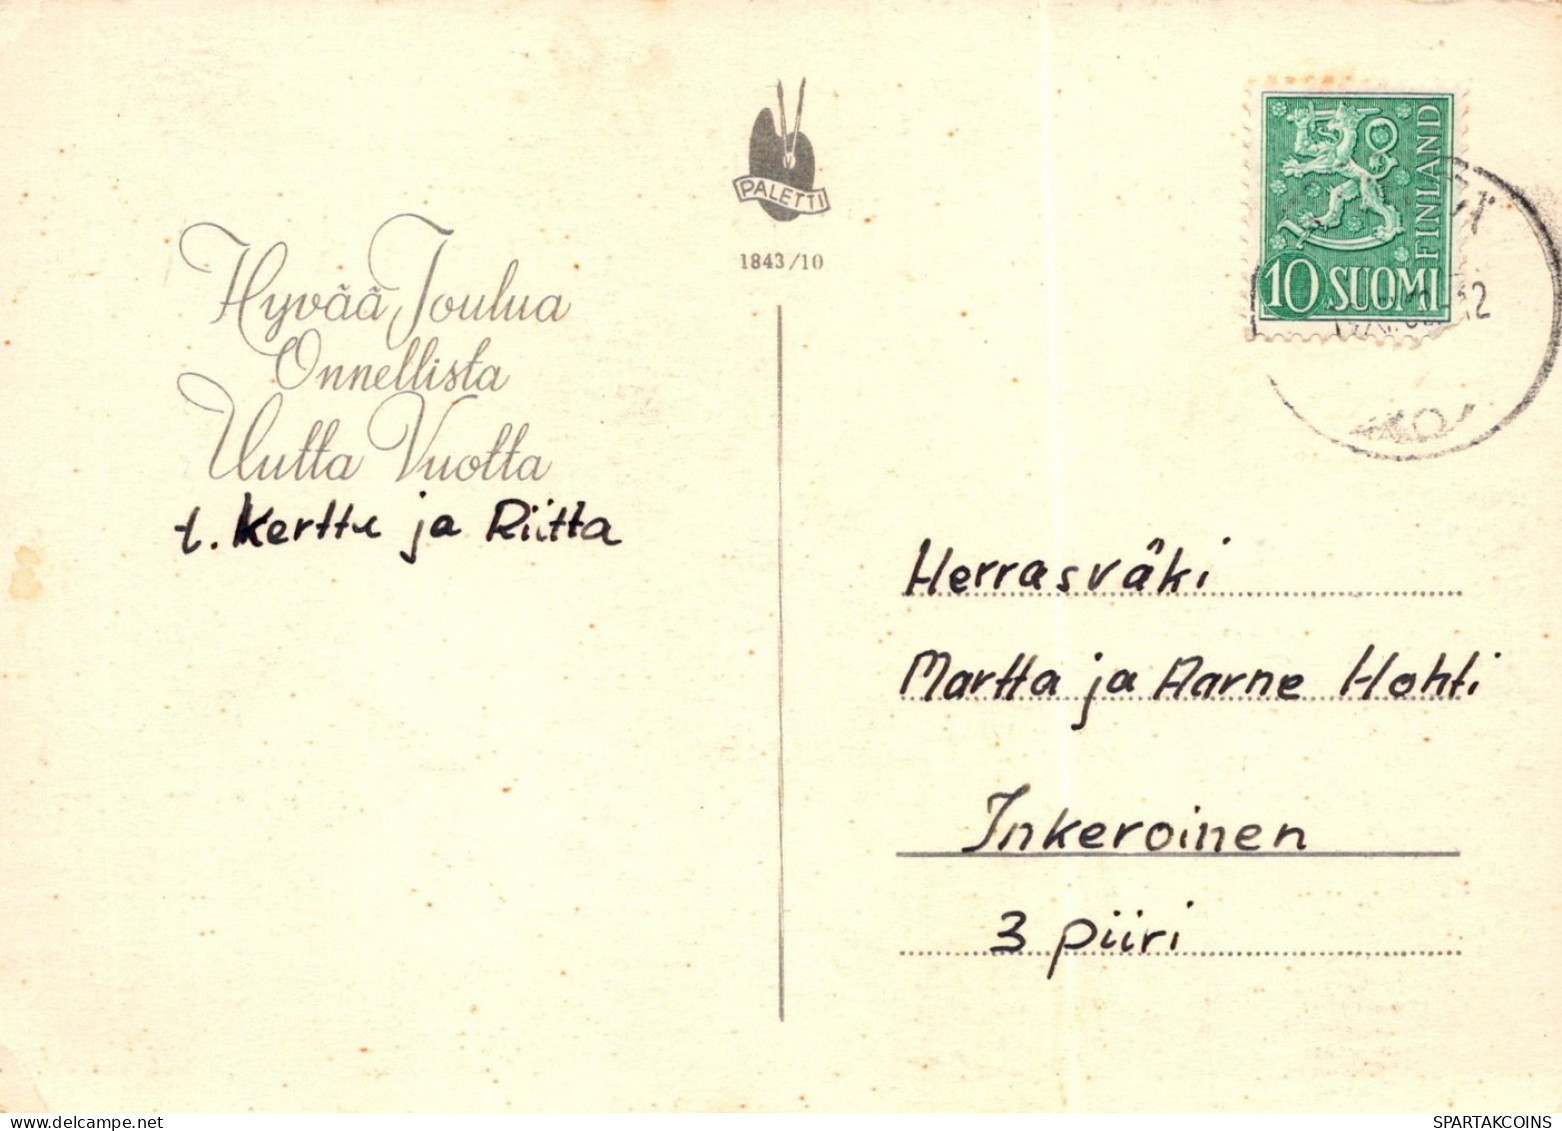 PALETTI
1843/10
Hyvää Joulua
Onnellista
Uutta Vuotta
t. Kerttu ja Riitta
FINLAND
10 SUOMI
Herrasväki
Martta ja Aarne Hohti
Inkeroinen
3 piiri
delcampe.net
SPARTAKCOINS